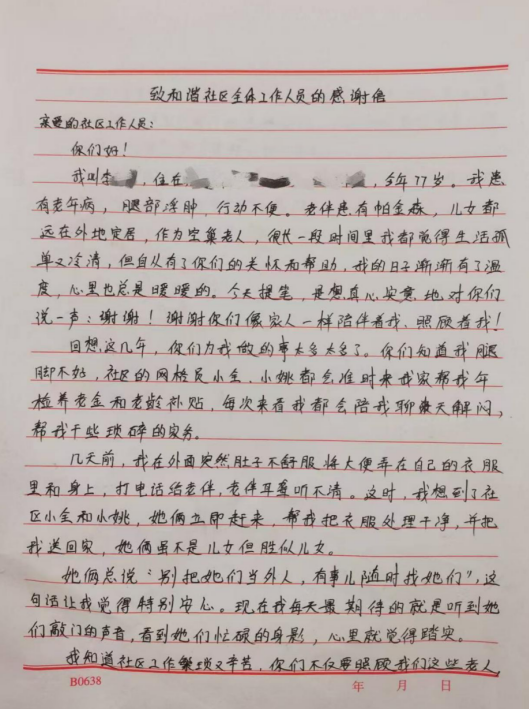 致和谐社区全体工作人员的感谢信
亲爱的社区工作人员:
你们好!
我叫李 , 住在 , , 今年77岁。我患
有老年病,腿部浮肿,行动不便。老伴患有帕金森,儿女都
远在外地定居,作为空巢老人,很长一段时间里我都觉得生活孤
单又冷清,但自从有了你们的关怀和帮助,我的日子渐渐有了温
度,心里也总是暖暖的。今天提笔,是想真心实意地对你们
说一声:谢谢!谢谢你们像家人一样陪伴着我、照顾着我!
回想这几年,你们为我做的事太多太多了。你们知道我腿
脚不好,社区的网格员小全、小姚都会准时来我家帮我年
检养老金和老龄补贴,每次来看我都会陪我聊聊天解闷,
帮我干些琐碎的家务。
几天前,我在外面突然肚子不舒服将大便弄在自己的衣服
里和身上,打电话给老伴,老伴耳聋听不清。这时,我想到了社
区小全和小姚,她俩立即赶来,帮我把衣服处理干净,并把
我送回家,她俩虽不是儿女但胜似儿女。
她俩总说"别把她们当外人,有事儿随时找她们",这
句话让我觉得特别安心。现在我每天最期待的就是听到她
们敲门的声音,看到她们忙碌的身影,心里就觉得踏实。
我知道社区工作繁琐又辛苦,你们不仅要照顾我们这些老人
B0638 年 月 日